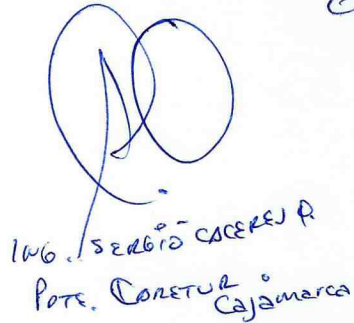 ING. SERGIO CACERES P.
PDTE. CORETUR
Cajamarca